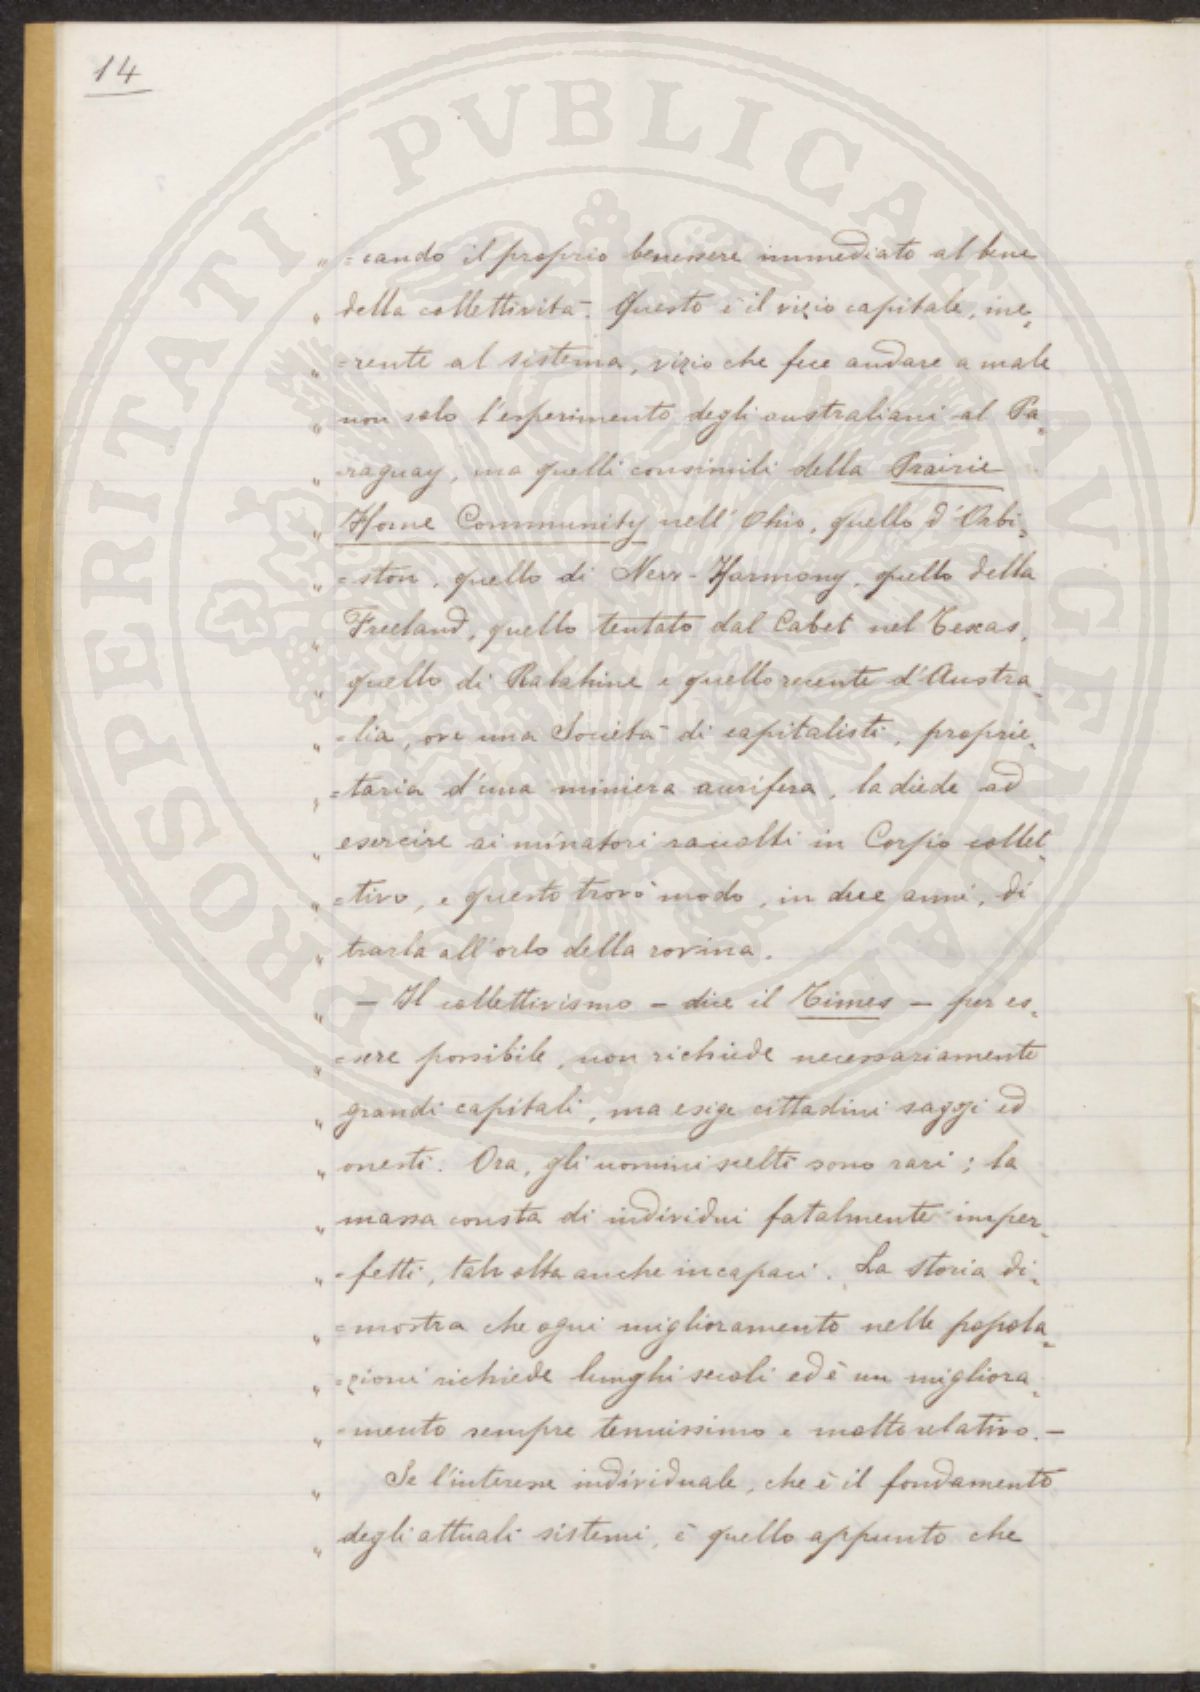 14
PROSPERITATI PVBLICAE AVGENDAE
" =cando il proprio benessere immediato al bene
" della collettività. Questo è il vizio capitale, ine=
" =rente al sistema, vizio che fece andare a male
" non solo l'esperimento degli australiani al Pa=
" =raguay, ma quelli consimili della Prairie
" Home Community nell'Ohio, quello d'Orbi=
" =ston, quello di New-Harmony, quello della
" Freeland, quello tentato dal Cabet nel Texas,
" quello di Ralahine e quello recente d'Austra=
" =lia, ove una Società di capitalisti, proprie=
" =taria d'una miniera aurifera, la diede ad
" esercire ai minatori raccolti in Corpo collet=
" =tivo, e questo trovò modo, in due anni, di
" trarla all'orlo della rovina.
" — Il collettivismo — dice il Times — per es=
" =sere possibile, non richiede necessariamente
" grandi capitali, ma esige cittadini saggi ed
" onesti. Ora, gli uomini scelti sono rari; la
" massa consta di individui fatalmente imper=
" =fetti, talvolta anche incapaci. La storia di=
" =mostra che ogni miglioramento nelle popola=
" =zioni richiede lunghi secoli ed è un migliora=
" =mento sempre tenuissimo e molto relativo. —
" Se l'interesse individuale, che è il fondamento
" degli attuali sistemi, è quello appunto che